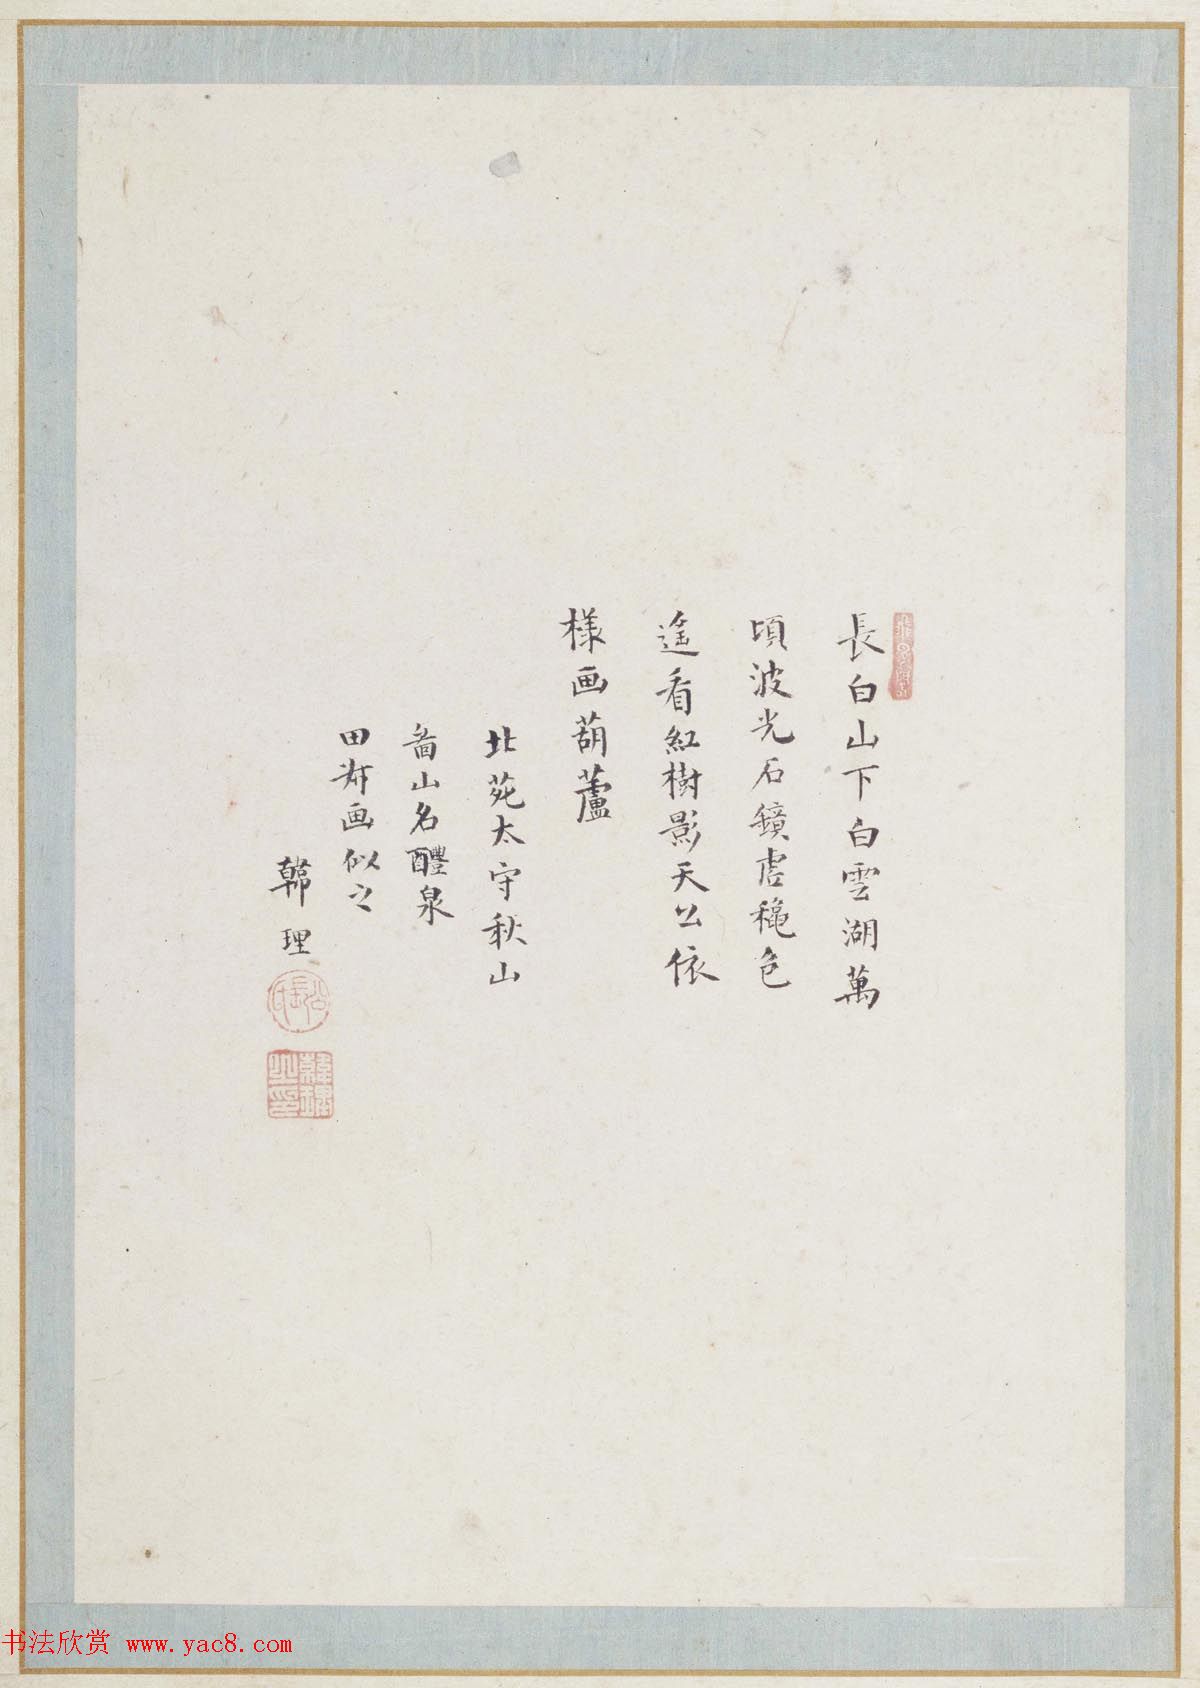 長白山下白雲湖萬
頃波光石鏡虛穐色
遙看紅樹影天公依
樣画葫蘆
北苑太守秋山
啚山名醴泉
田畍画似之
韓理
書法欣赏 www.yac8.com